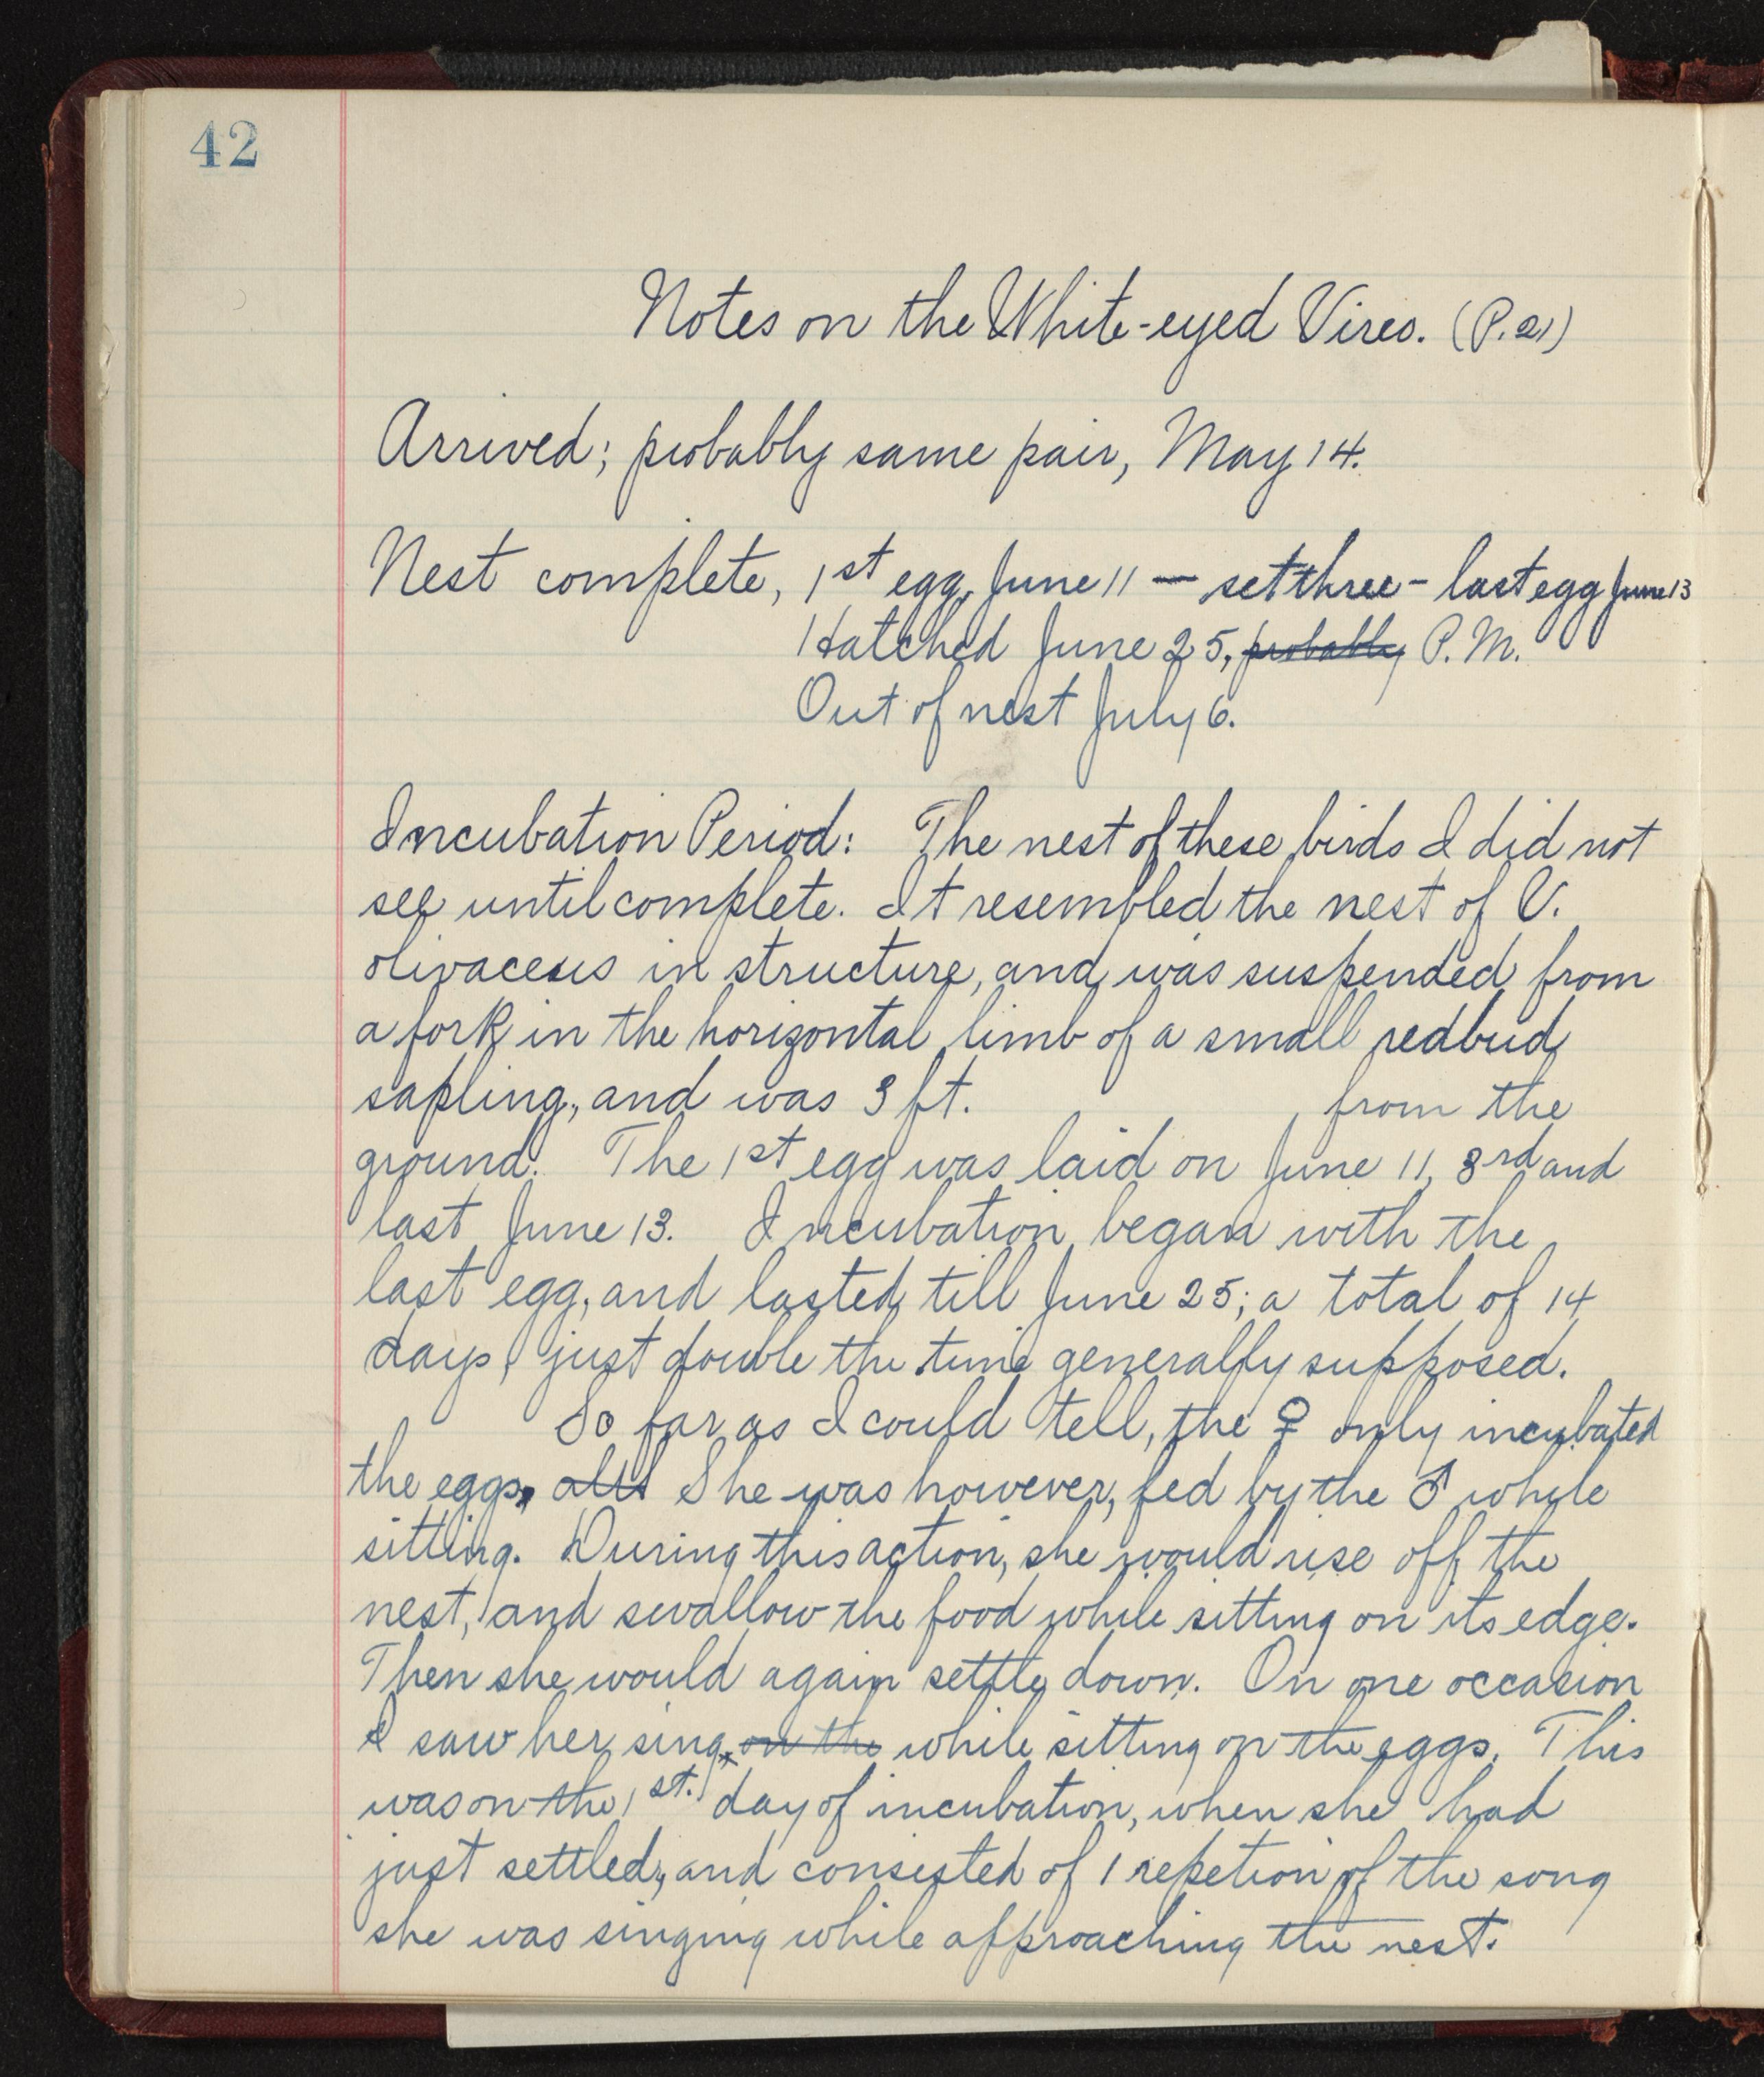 42
Notes on the White-eyed Vireo. (P.21)
Arrived; probably same pair, May 14.
Nest complete, 1st egg, June 11 — set three - last egg June 13
Hatched June 25, probably P.M.
Out of nest July 6.
Incubation Period: The nest of these birds I did not
see until complete. It resembled the nest of V.
olivaceus in structure, and was suspended from
a fork in the horizontal limb of a small redbud
sapling, and was 3 ft. from the
ground. The 1st egg was laid on June 11, 3rd and
last June 13. Incubation began with the
last egg, and lasted till June 25; a total of 14
days, just double the time generally supposed.
So far as I could tell, the ♀ only incubated
the eggs. She was however, fed by the ♂ while
sitting. During this action, she would rise off the
nest, and swallow the food while sitting on its edge.
Then she would again settle down. On one occasion
I saw her sing on the while sitting on the eggs. This
was on the 1st. day of incubation, when she had
just settled, and consisted of 1 repetion of the song
she was singing while approaching the nest.